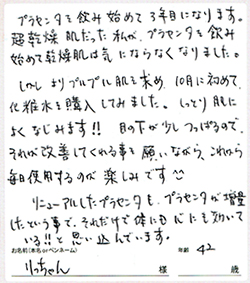 プラセンタを飲み始めて3年目になります。
超乾燥肌だった私が、プラセンタを飲み
始めて乾燥肌は気にならなくなりました。
しかしよりプルプル肌を求め、10月に初めて、
化粧水を購入してみました。しっとり肌に
よくなじみます!! 目の下が少しつっぱるので、
それが改善してくれる事を願いながら、これから
毎日使用するのが楽しみです
リニューアルしたプラセンタも、プラセンタが増量
したという事で、それだけで体にも心にも効いて
いる!!と思い込んでいます。
お名前(本名orペンネーム) 年齢 42
りっちゃん 様 歳